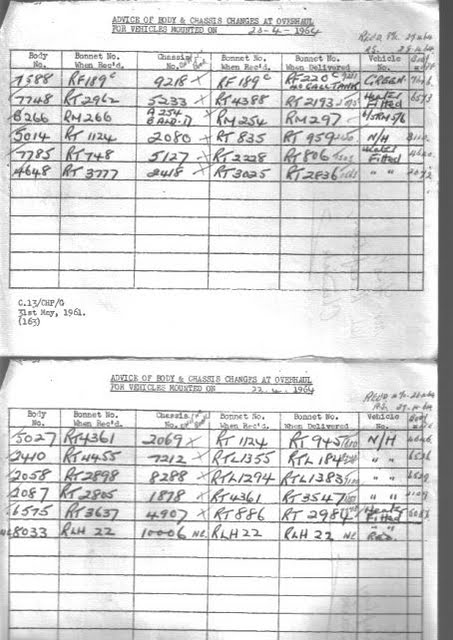 ADVICE OF BODY & CHASSIS CHANGES AT OVERHAUL
FOR VEHICLES MOUNTED ON 23-4-1964
Body No. Bonnet No. When Rec'd. Chassis No. Bonnet No. When Rec'd. Bonnet No. When Delivered Vehicle No.
7588 RF189C 9218 X RF189C RF220C GREEN
7748 RT2962 5233 X RT4388 RT2193 Heater Fitted
8266 RM266 A254 RM254 RM297
5014 RT1124 2080 X RT835 RT959 N/H
7785 RT748 5127 X RT2228 RT806 Heater Fitted
4648 RT3777 2418 X RT3025 RT2836 " "
C.13/CHP/G
31st May, 1961.
(163)
ADVICE OF BODY & CHASSIS CHANGES AT OVERHAUL
FOR VEHICLES MOUNTED ON 22.4.1964
Body No. Bonnet No. When Rec'd. Chassis No. Bonnet No. When Rec'd. Bonnet No. When Delivered Vehicle No.
5027 RT4361 2069 X RT1124 RT945 N/H
2410 RT4455 7212 X RTL1355 RTL184 " "
2058 RT2898 8288 X RTL1294 RTL1383 " "
2087 RT2805 1878 X RT4361 RT3547 " "
6575 RT3637 4907 X RT886 RT2984 Heater Fitted
8033 RLH22 10006 NC RLH22 RLH22 NC " " Red.